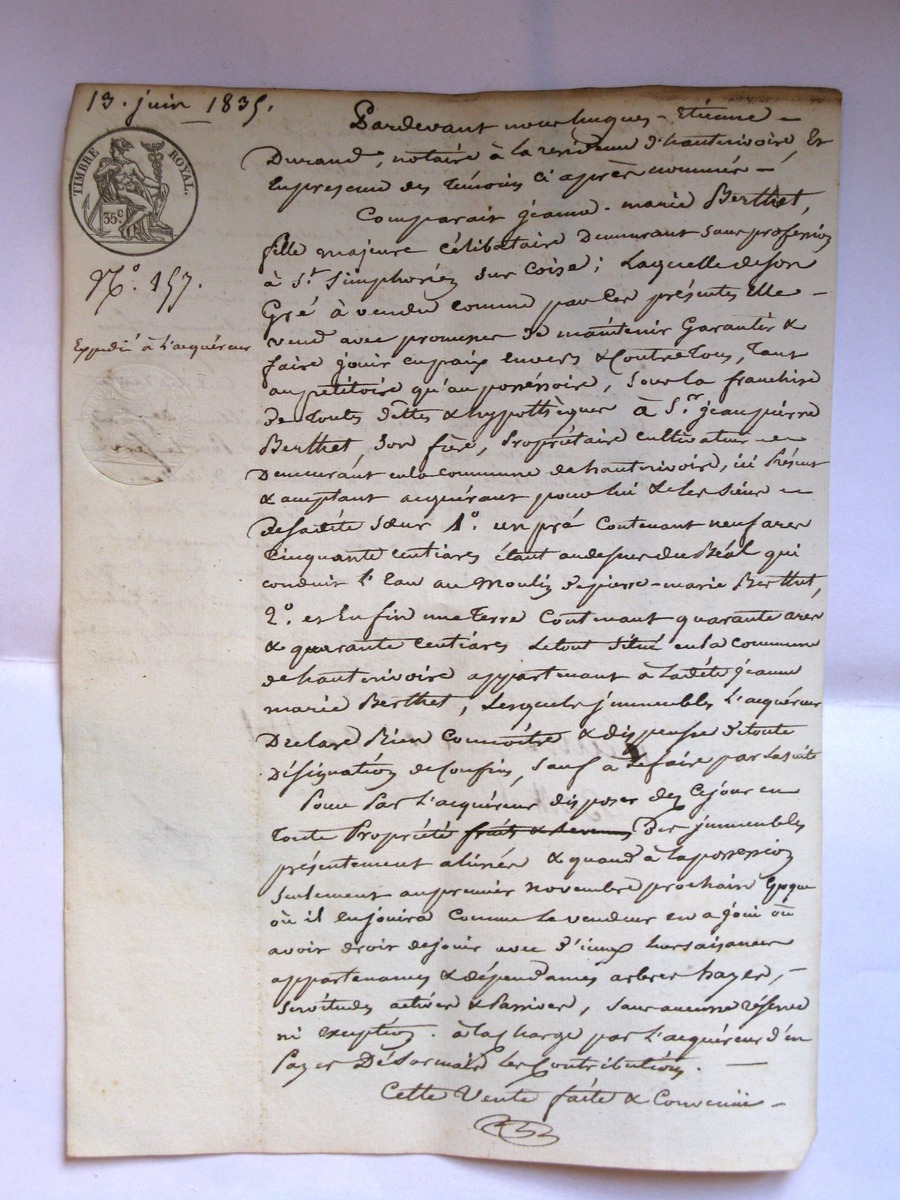 13. juin 1835.
TIMBRE ROYAL.
35c.
N.º 157.
Expedié à l'acquéreur
Pardevant nous hugues-Etienne-
Durand, notaire à la residence d'hauterivoire, Et
En presence des temoins ci après nommés-
Comparait jeanne-marie Berthet,
fille majeure célibataire Demeurant sans profession
à St. Simphorien sur Coise; Laquelle de son
Gré à vendu comme par les présentes Elle-
vend avec promesse de maintenir Garantir &
faire jouir en paix envers & Contre tous, tant
au petitoire qu'au possessoire, sous la franchise
de toutes dettes & hypothèques à Sr. jean pierre
Berthet, son frère, Propriétaire cultivateur
Demeurant en la commune de hauterivoire, ici Présent
& acceptant acquérant pour lui & les siens
De sa dite sœur 1º. un pré Contenant neuf ares
Cinquante centiares étant au dessus du Béal qui
conduit l'Eau au Moulin de pierre-marie Berthet,
2º. et Enfin une Terre Contenant quarante ares
& quarante Centiares Le tout situé en la Commune
de hauterivoire appartenant à la dite jeanne
marie Berthet, Lesquels jmmeubles L'acquéreur
Déclare Bien Connoître & dispense de toute
Désignation de Confins, sauf à Le faire par la suite
Pour Par L'acquéreur disposer dès Ce jour en
toute Propriété fruits & Revenus Des jmmeubles
présentement aliénés & quand à la possession
seulement au premier novembre prochain Epoque
où il en jouira comme le vendeur en a joui ou
avoir droit de jouir avec d'iceux leurs aisances
appartenances & dépendances arbres hayes,-
servitudes actives & Passives, sans aucune réserve
ni exception. à la Charge par L'acquéreur d'en
Payer Désormais Les Contributions.
Cette Vente faite & Convenue-